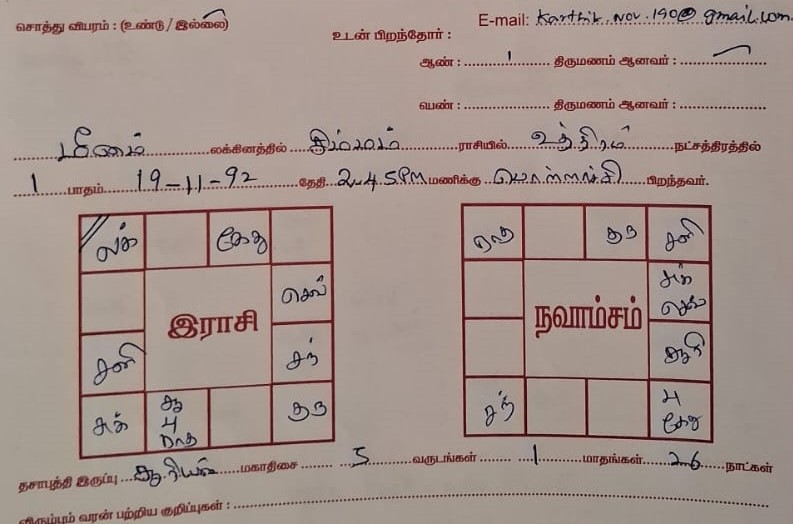 சொத்து விபரம் : (உண்டு / இல்லை)
E-mail: Karthik.nov.190@gmail.com
உடன் பிறந்தோர் :
ஆண் : 1 திருமணம் ஆனவர் : —
பெண் : திருமணம் ஆனவர் :
மீனம் லக்கினத்தில் சிம்மம் ராசியில் உத்திரம் நட்சத்திரத்தில்
1 பாதம் 19-11-92 தேதி 2.45 PM மணிக்கு பொள்ளாச்சி பிறந்தவர்.
லக் கேது
செவ்
இராசி
சனி சந்
சுக் சூ பு ராகு குரு
ராகு குரு சனி
சுக் செவ்
நவாம்சம்
சூரி
சந் பு கேது
தசாபுத்தி இருப்பு சூரியன் மகாதிசை 5 வருடங்கள் 1 மாதங்கள் 26 நாட்கள்
விரும்பும் வரன் பற்றிய குறிப்புகள் :